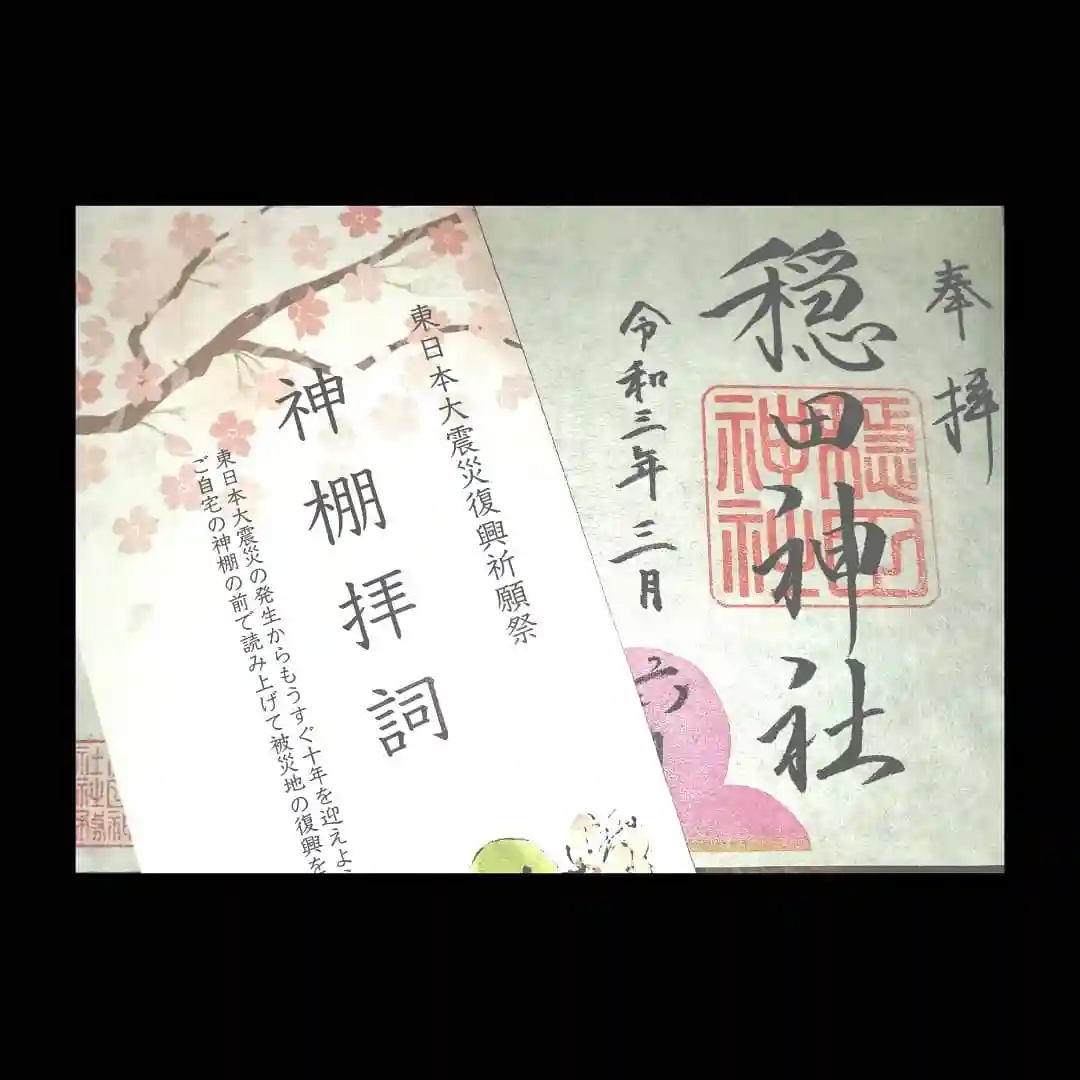 奉拝
穏田神社
令和三年三月
六
東日本大震災復興祈願祭
神棚拝詞
東日本大震災の発生からもうすぐ十年を迎えよ
ご自宅の神棚の前で読み上げて被災地の復興を